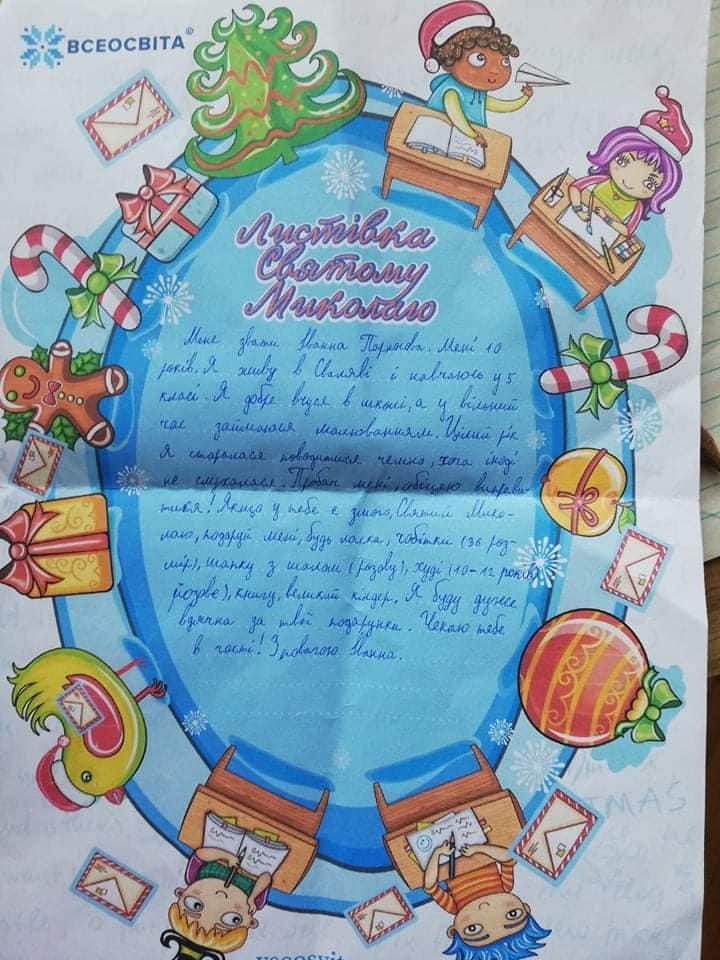 ВСЕОСВІТА
Листівка
Святому
Миколаю
Мене звати Іванна. Мені 10
років. Я живу в Сваляві і навчаюсь у 5
класі. Я добре вчуся в школі, а у вільний
час займаюся малюванням. Цілий рік
я старалася поводитися чемно, хоча іноді
не слухалася. Пробач мені, обіцяю виправи-
тися! Якщо у тебе є змога, Святий Мико-
лаю, подаруй мені, будь ласка, чобітки (36 роз-
мір), шапку з шалом (розову), худі (10-12 років
розове), книгу, великий кіндер. Я буду дуже
вдячна за твої подарунки. Чекаю тебе
в гості! З повагою Іванна.
MAS
vseosvit